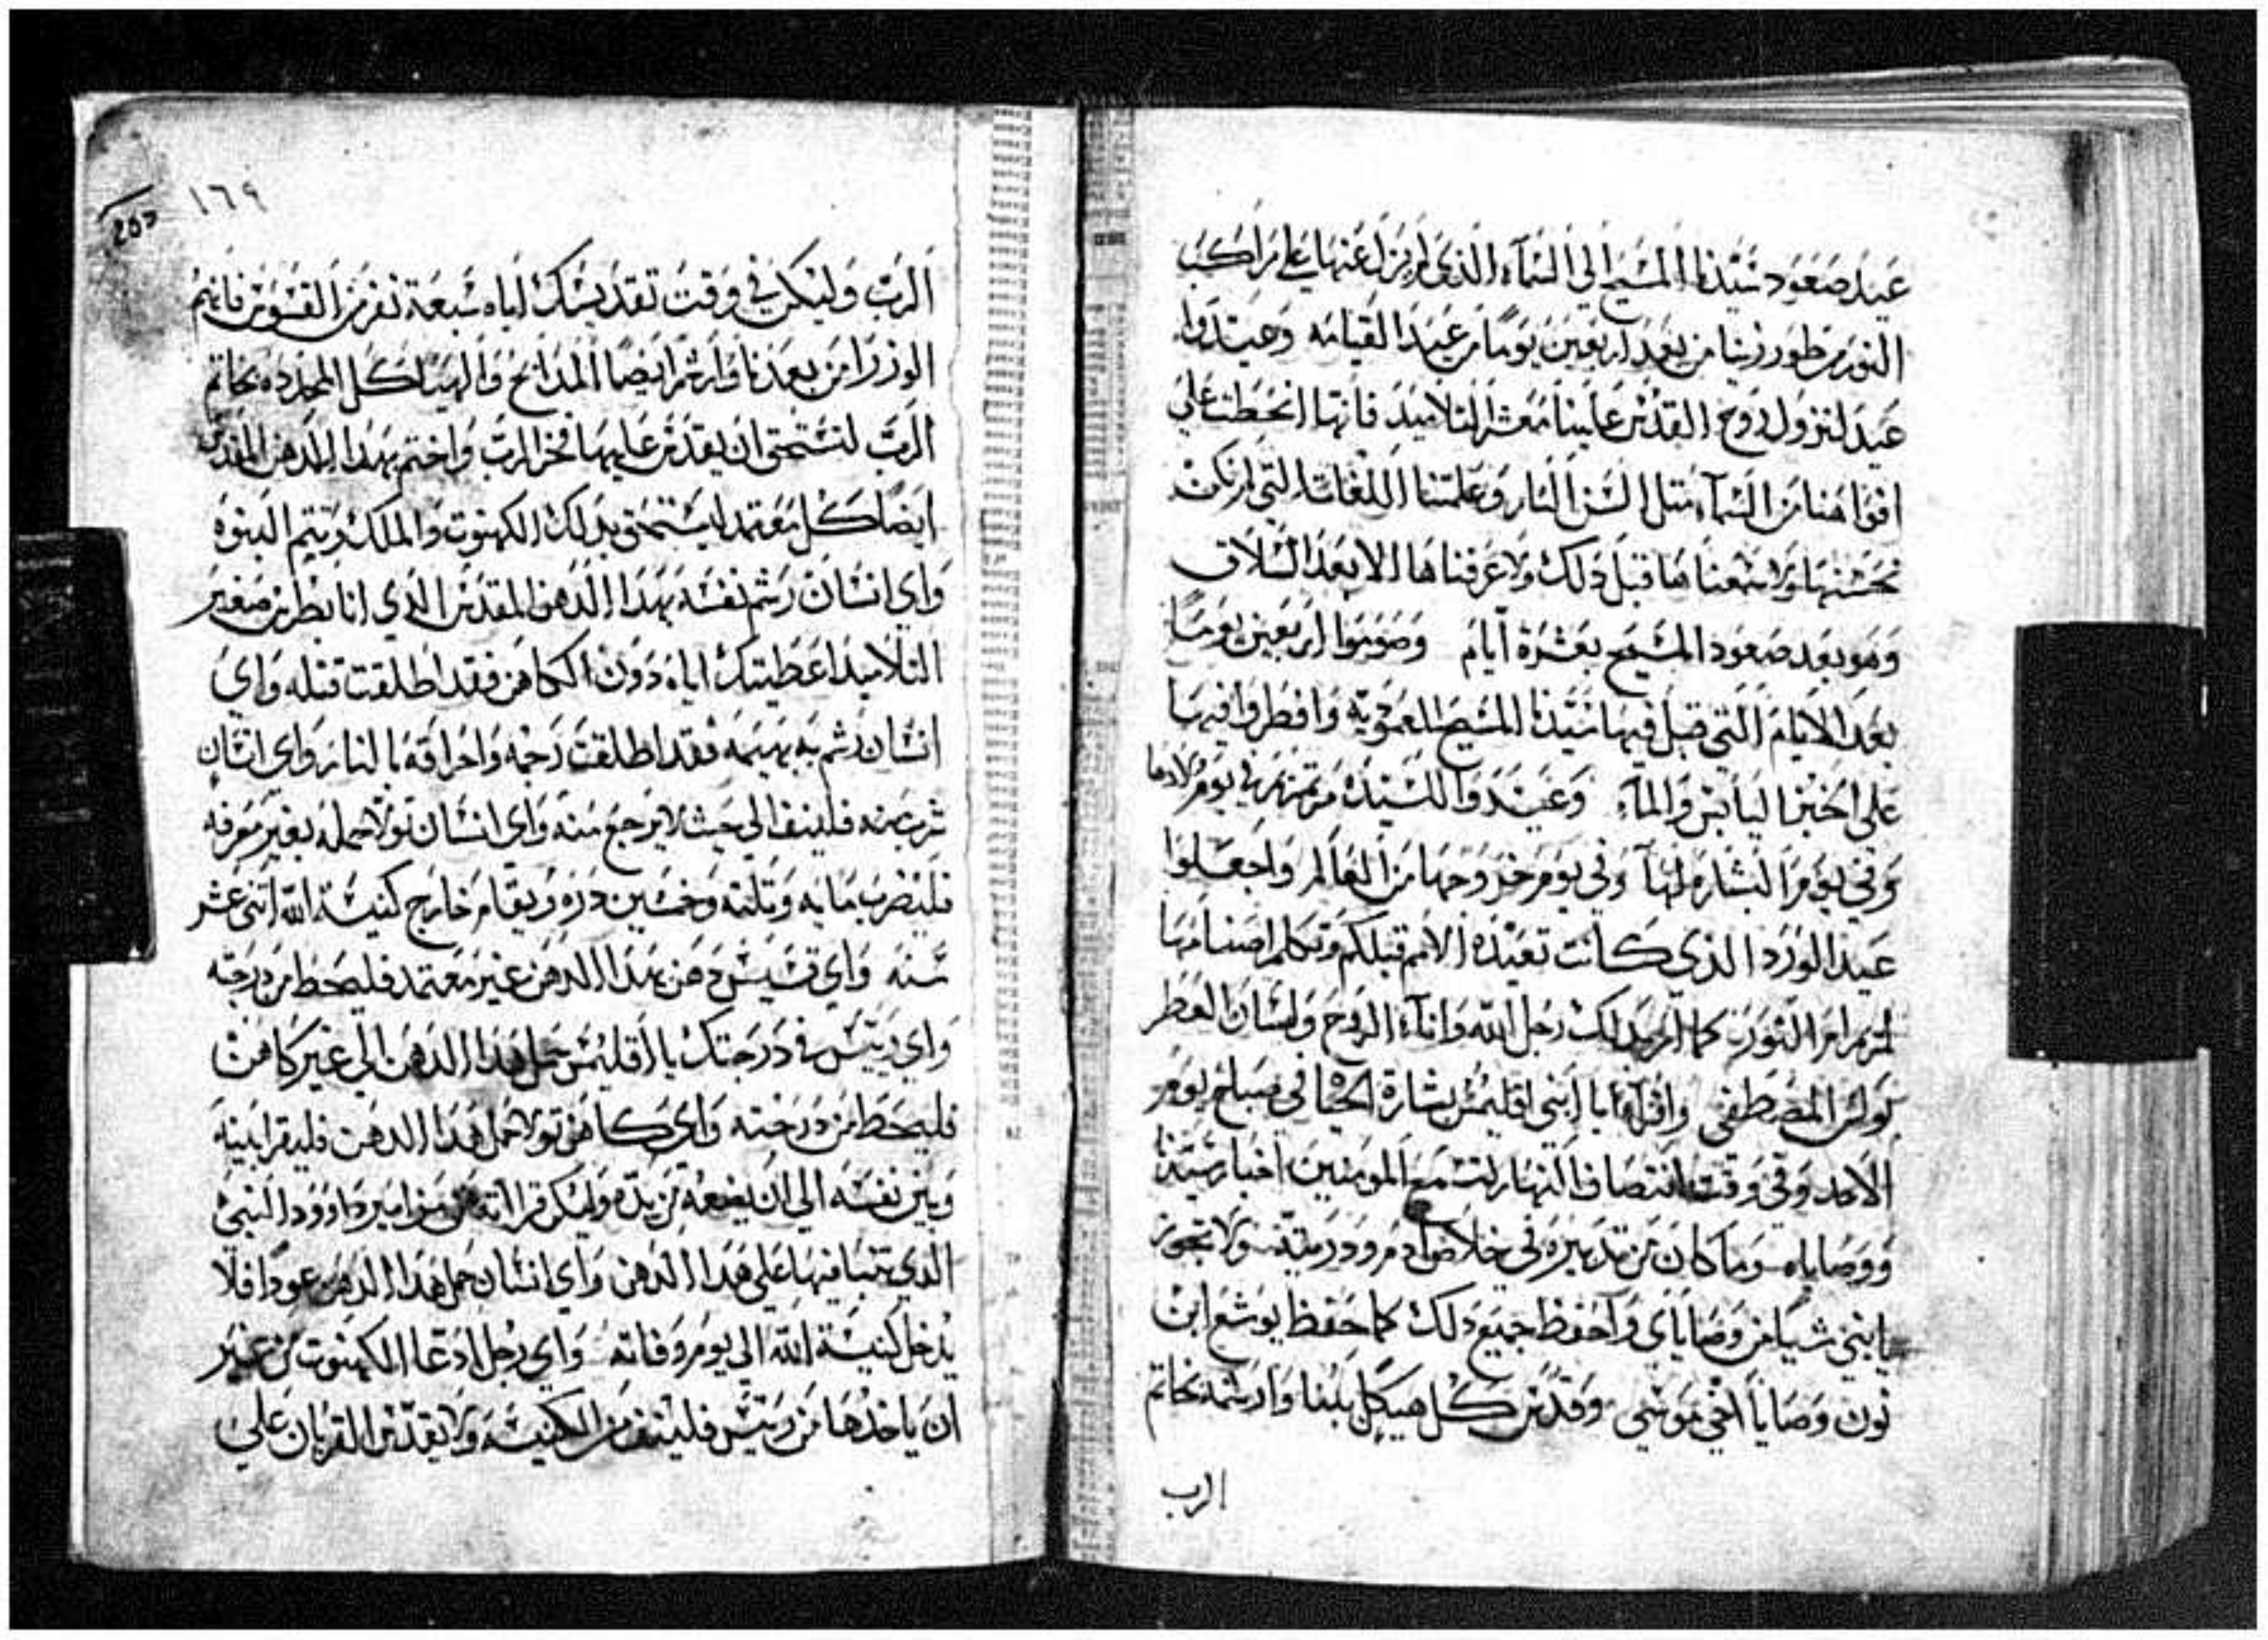 عيد صعود سيدنا المسيح الي السماء الذي لم يزل عنها علي مراكب
النور من طور زيتا من بعد اربعين يوما من عيد القيامه وعيدوا
عيد لنزول روح القدس علينا معشر التلاميد فانها انحطت علي
افواهنا من السماء متل السن النار وعلمتنا اللغات التي لم نكن
نحسنها ولا سمعناها قبل دلك ولا عرفناها الا بعد السلاق
وهو بعد صعود المسيح بعشرة ايام وصوموا اربعين يوما
بعد الايام التي قبل فيها سيدنا المسيح المعموديه وافطروا فيها
علي الخبز اليابس والماء وعيدوا للسيده مرتمريم في يوم ولادها
وفي يوم البشاره لها وفي يوم خروجها من العالم واجعلوا
عيد الورد الذي كانت تعبده الامم قبلكم وتكلم اصنامها
لمرتمريم ام النور كما امر بدلك رجل الله واناء الروح ولسان العطر
بولس المصطفي واقراء يا ابني اقليمس بشارة يوحنا في صباح يوم
الاحد وفي وقت انتصاف النهار لتسمع المومنين اخبار سيدنا
ووصاياه وما كان من تدبيره في خلاص ادم ودريته ولا تجوز
يا ابني شيا من وصاياي واحفظ جميع دلك كما حفظ يوشع ابن
نون وصايا اخي موسي وقدس كل هيكل بلبنا وارشمه بخاتم
الرب
١٦٩
الرب وليكن في وقت تقديسك اياه سبعة نفر من القسوس فانهم
الوزرا من بعدنا وارشم ايضا المدابح والهياكل المجدده بخاتم
الرب لتستحق ان يقدس عليها فخر الرب واختم بهدا الدهن المقدس
ايضا كل معتمد ليستحق بدلك الكهنوت والملك ويتم البنوه
واي انسان رشم نفسه بهدا الدهن المقدس الذي انا بطرس صغير
التلاميد اعطيتك اياه دون الكاهن فقد اطلقت قتله واي
انسان رشم به بهيمه فقد اطلقت رجمه واحراقه بالنار واي انسان
شرب منه فلينف الي حيث لا يرجع منه واي انسان تولا حمله بغير معرفه
فليضرب مايه وتلته وخمسين دره ويقام خارج كنيسة الله اتني عشر
سنه واي قسيس دهن بهدا الدهن غير معتمد فليحط من درجته
واي رييس في درجتك يا اقليمس حمل هدا الدهن الي غير كاهن
فليحط من درجته واي كاهن تولا حمل هدا الدهن فليقرا بينه
وبين نفسه الي ان يضعه من يده وليكن قراته من مزامير داوود النبي
الدي تنبا فيها علي هدا الدهن واي انسان حمل هدا الدهن عودا فلا
يدخل كنيسة الله الي يوم وفاته واي رجل ادعا الكهنوت من غير
ان ياخدها من رييس فلينف من الكنيسه ولا يقدس القربان علي